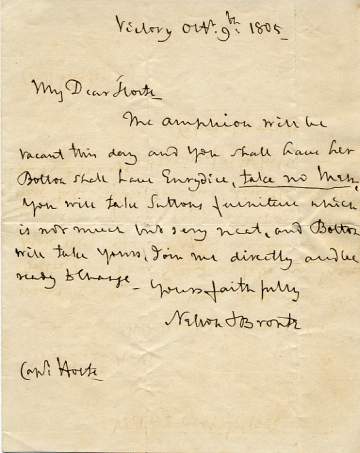 Victory Octr. 9th. 1805
My Dear Hoste
The Amphion will be
vacant this day and you shall have her
Bolton shall have Eurydice, take no Men,
you will take Suttons furniture which
is not much but very neat, and Bolton
will take yours, Join me directly and be
ready to Change - Yours faithfully
Nelson & Bronte
Capt. Hoste